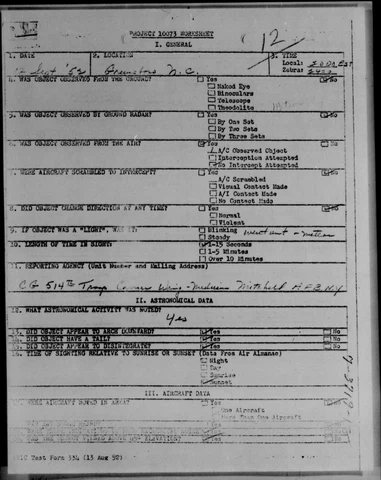 PROJECT 10073 WORKSHEET
I. GENERAL
12
1. DATE
2. LOCATION
3. TIME
Local:
Zebra:
12 Sept '52
N.C.
4. WAS OBJECT OBSERVED FROM THE GROUND? Yes No
Naked Eye
Binoculars
Telescope
Theodolite
5. WAS OBJECT OBSERVED BY GROUND RADAR? Yes No
By One Set
By Two Sets
By Three Sets
6. WAS OBJECT OBSERVED FROM THE AIR? Yes No
A/C Observed Object
Interception Attempted
No Intercept Attempted
7. WERE AIRCRAFT SCRAMBLED TO INTERCEPT? Yes No
A/C Scrambled
Visual Contact Made
A/I Contact Made
No Contact Made
8. DID OBJECT CHANGE DIRECTION AT ANY TIME? Yes No
Normal
Violent
9. IF OBJECT WAS A "LIGHT", WAS IT: Blinking
Steady
10. LENGTH OF TIME IN SIGHT: 1-15 Seconds
1-5 Minutes
Over 10 Minutes
11. REPORTING AGENCY (Unit Number and Mailing Address)
CG 514th Troop Carrier Wing - Medium Mitchell AFB NY
II. ASTRONOMICAL DATA
12. WHAT ASTRONOMICAL ACTIVITY WAS NOTED?
Yes
13. DID OBJECT APPEAR TO ARCH DOWNWARD? Yes No
14. DID OBJECT HAVE A TAIL? Yes No
15. DID OBJECT APPEAR TO DISINTEGRATE? Yes No
16. TIME OF SIGHTING RELATIVE TO SUNRISE OR SUNSET (Data From Air Almanac)
Night
Day
Sunrise
Sunset
III. AIRCRAFT DATA
WERE AIRCRAFT NOTED IN AREA? Yes No
One Aircraft
More Than One Aircraft
ATIC Test Form 334 (13 Aug 52)